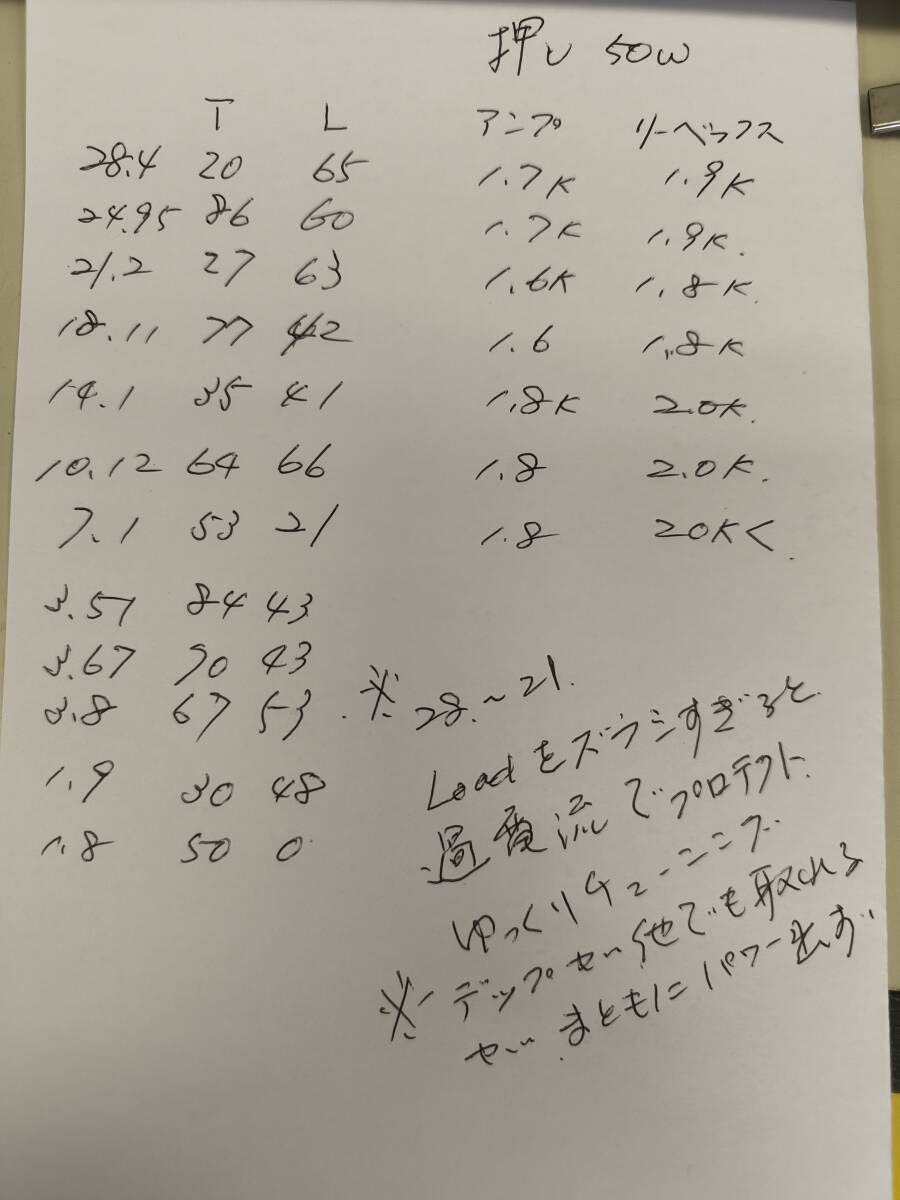 押し 50W
T L アンプ リーベックス
28.4 20 65 1.7K 1.9K
24.95 86 60 1.7K 1.9K.
21.2 27 63 1.6K 1.8K.
18.11 77 42 1.6 1.8K
14.1 35 41 1.8K 2.0K.
10.12 64 66 1.8 2.0K.
7.1 53 21 1.8 20K<.
3.57 84 43
3.67 70 43
3.8 67 53
1.9 30 48
1.8 50 0
※ 28.~21.
Loadをズラシすぎると
過電流でプロテクト.
ゆっくりチューニング
※ デップが他でも取れる
が まともにパワー出ず